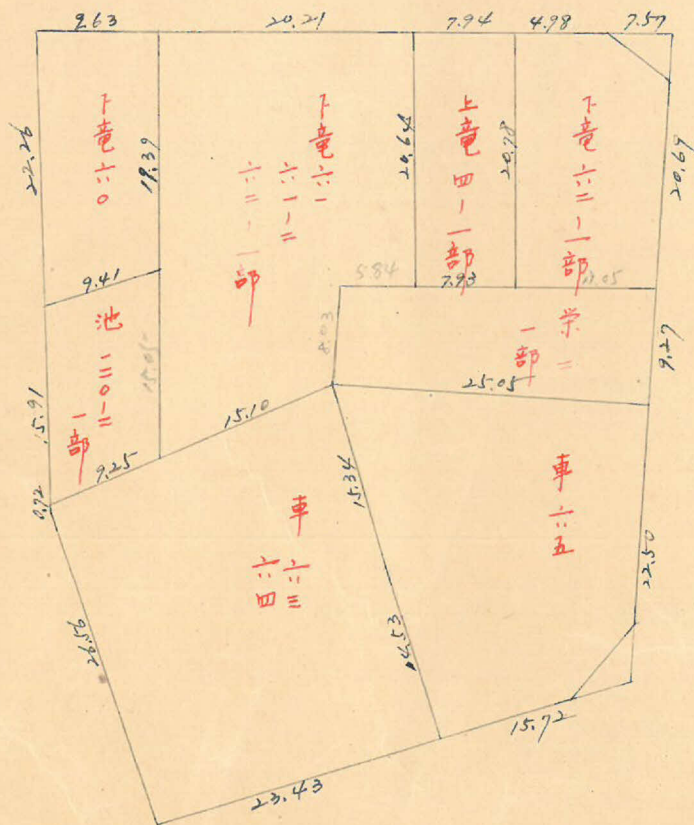 9.63
20.21
7.94
4.98
7.57
22.26
下竜六〇
19.39
下竜六一
六一ノ二
六二ノ一部
20.64
上竜四ノ一部
20.78
下竜六二ノ一部
20.69
9.41
5.84
7.93
13.05
池二二〇ノ二
一部
15.05
8.03
栄二
一部
9.27
15.91
15.10
25.05
9.25
0.72
15.34
車六三
六四
車六五
22.50
26.56
14.53
15.72
23.43